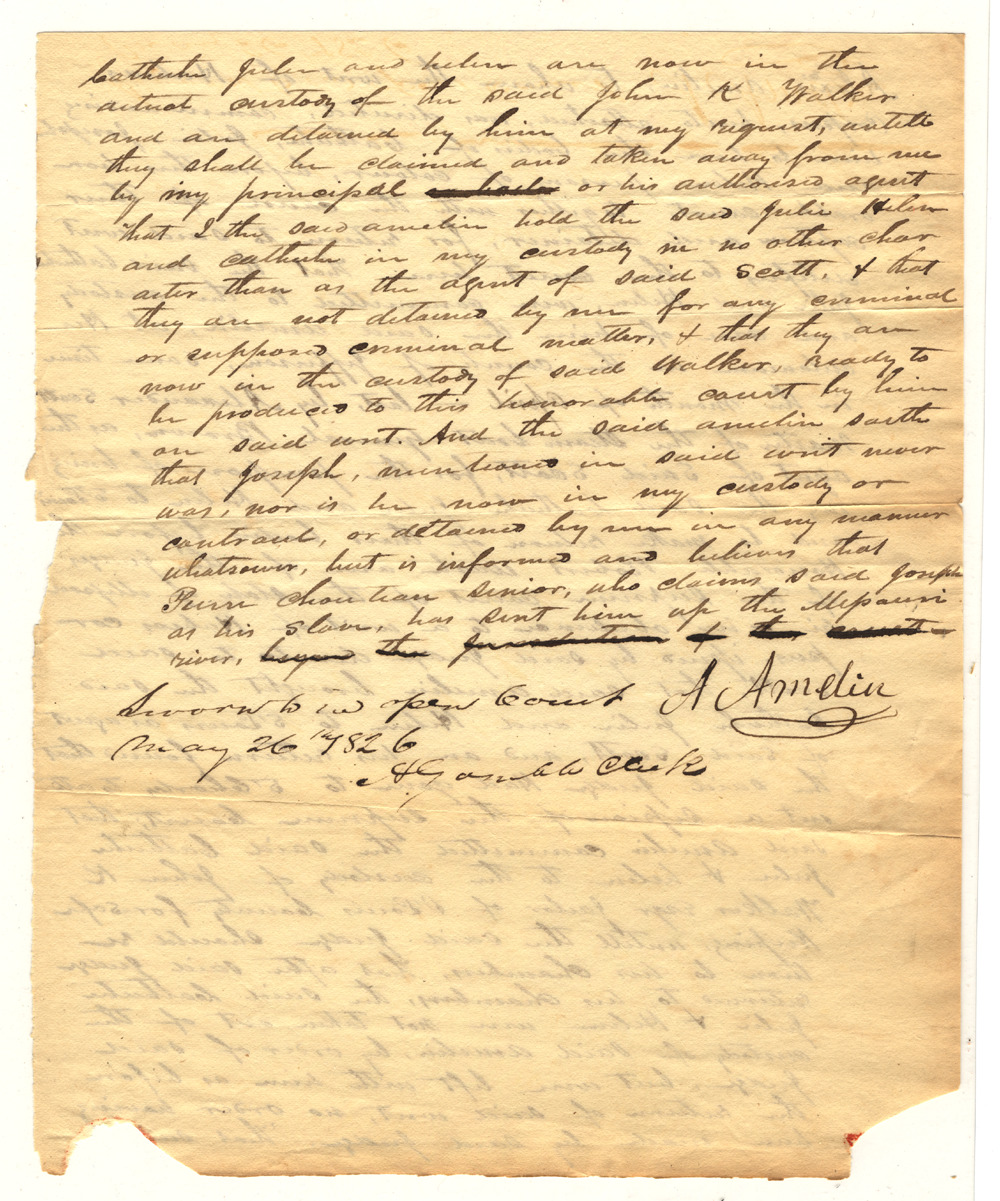 Catherine Julia and helen are now in the
actual custody of the said John K Walker
and are detained by him at my request, untill
they shall be claimed and taken away from me
by my principal or his authorised agent
that I the said amelin hold the said Julie Helen
and catherine in my custody in no other char
acter than as the agent of said Scott, & that
they are not detained by me for any criminal
or supposed criminal matter, & that they are
now in the custody of said Walker, ready to
be produced to this honorable court by him
on said writ. And the said amelin saith
that Joseph, mentioned in said writ never
was, nor is he now in my custody or
controul, or detained by me in any manner
whatsoever, but is informed and believes that
Pierre Chouteau Senior, who claims said Joseph
as his slave, has sent him up the Missouri
river, beyond the Jurisdiction of the court
Sworn to in open Court A Amelin
May 26th 1826
A Gamble Clerk